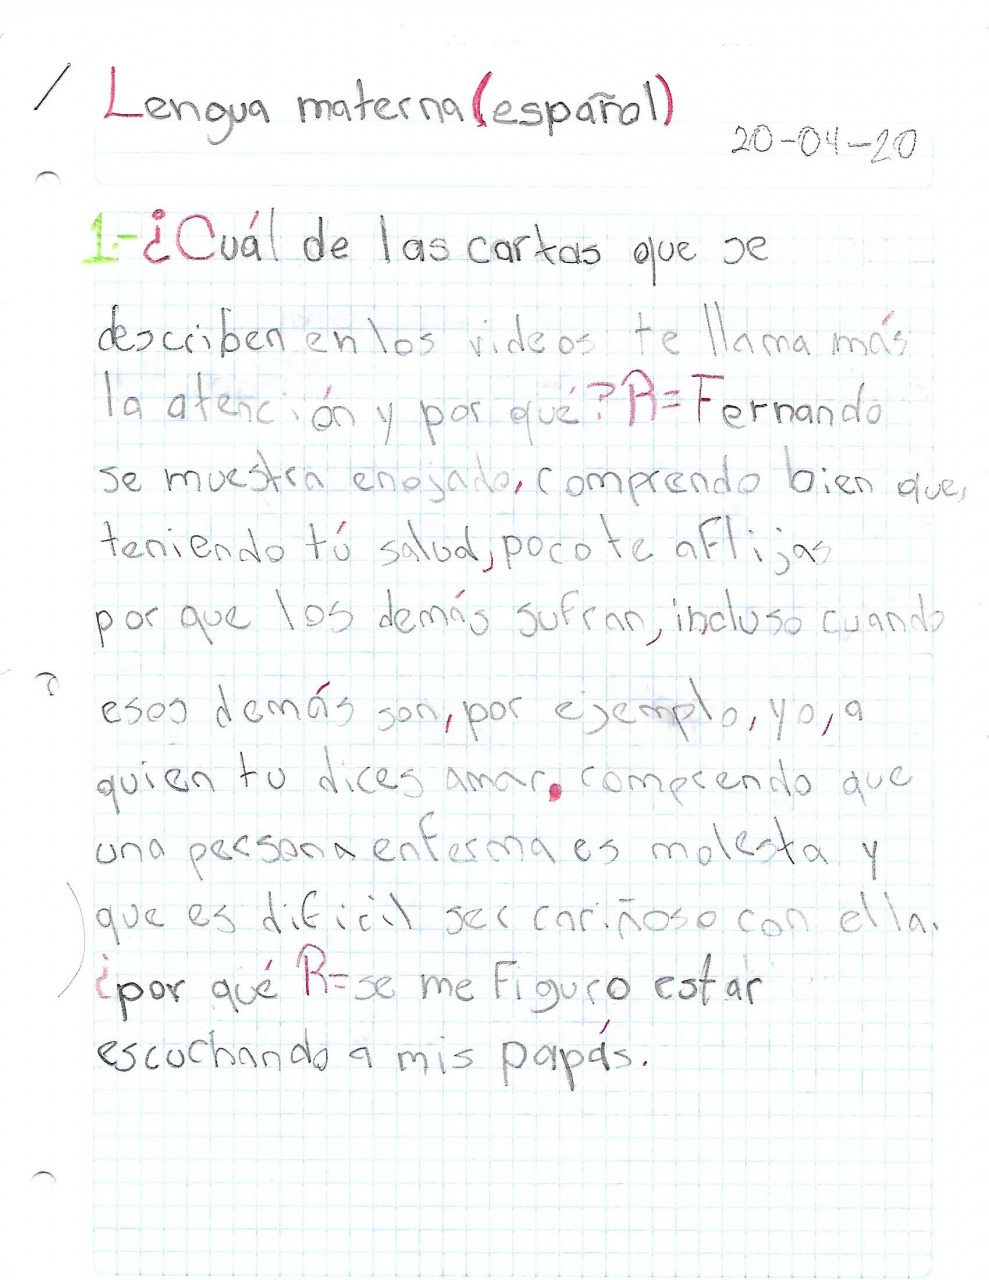 Lengua materna (español)
20-04-20
1.- ¿Cuál de las cartas que se
describen en los videos te llama más
la atención y por qué? R= Fernando
se muestra enojado, comprendo bien que,
teniendo tú salud, poco te aflijas
por que los demás sufran, incluso cuando
esos demás son, por ejemplo, yo, a
quien tu dices amar. comprendo que
una persona enferma es molesta y
que es dificil ser cariñoso con ella.
¿por qué R= se me Figuro estar
escuchando a mis papás.